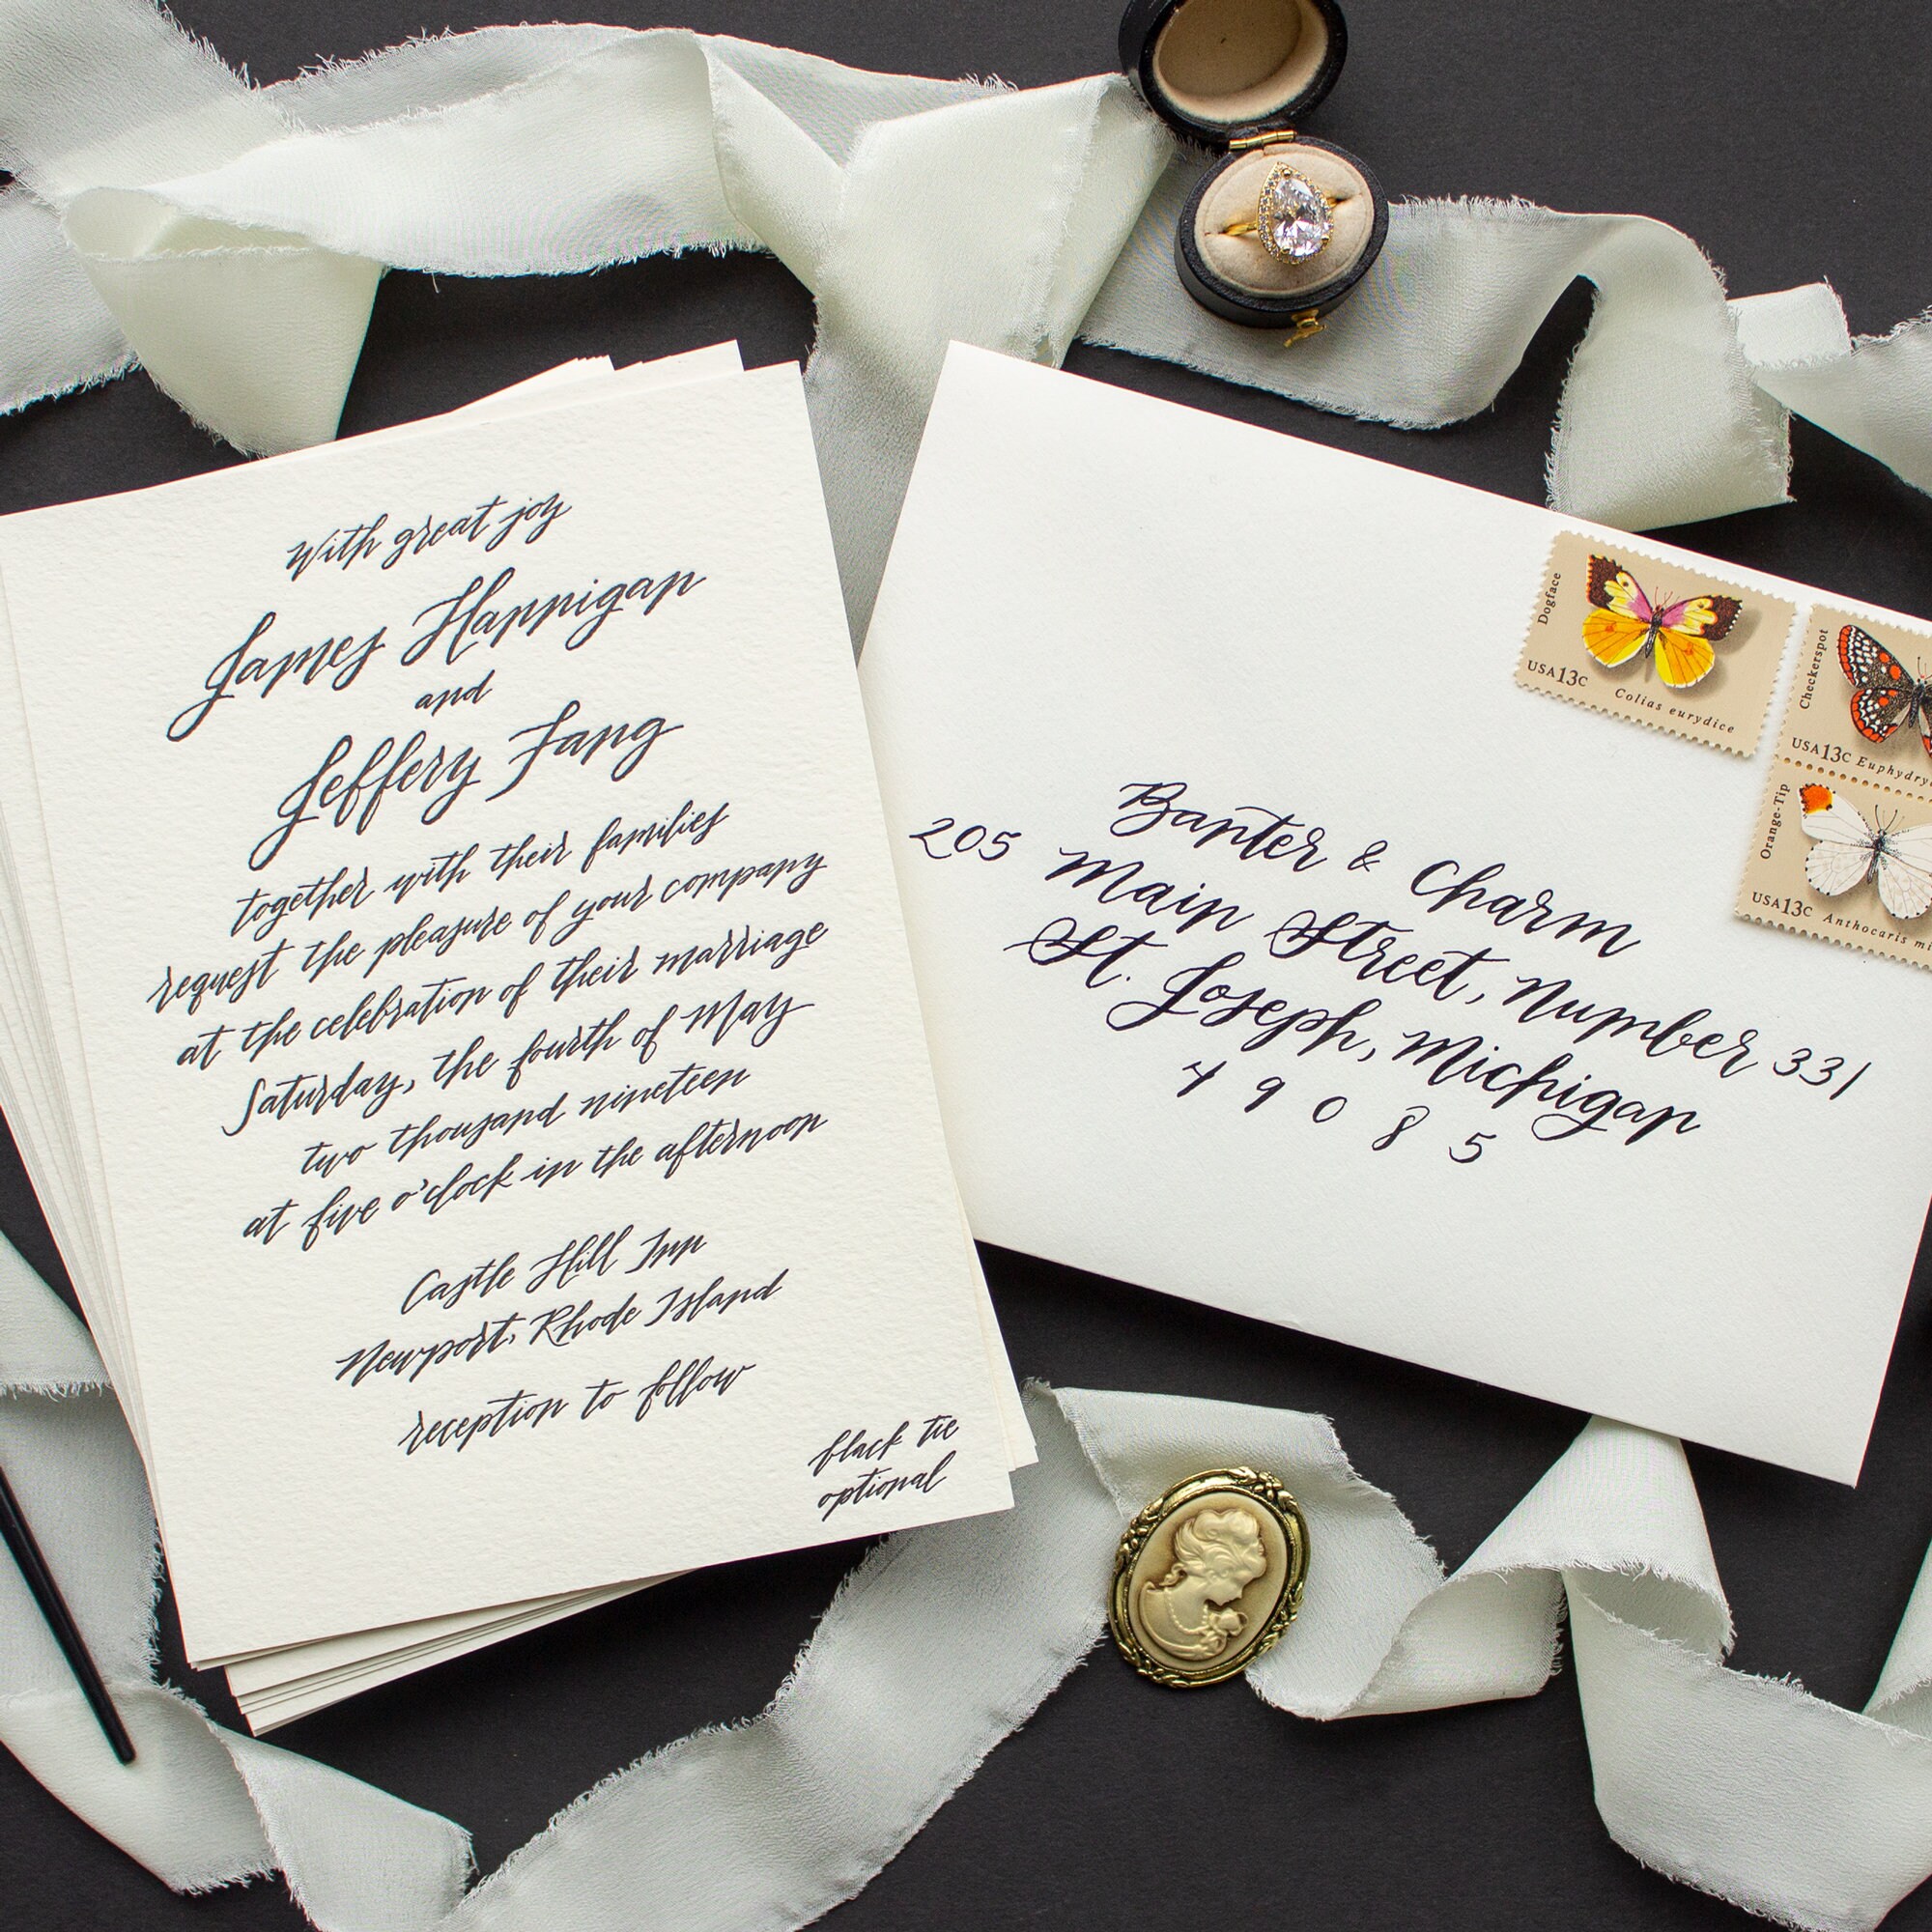 With great joy
James Hannigan
and
Jeffery Fang
together with their families
request the pleasure of your company
at the celebration of their marriage
Saturday, the fourth of May
two thousand nineteen
at five o'clock in the afternoon
Castle Hill Inn
Newport, Rhode Island
reception to follow
black tie
optional
Banter & Charm
205 Main Street, Number 331
St. Joseph, Michigan
49085
Dogface
USA13c Colias eurydice
Checkerspot
USA13c
Orange-Tip
USA13c Anthocaris